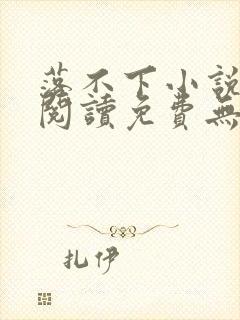 落不下小說
閱讀免費無
扎伊